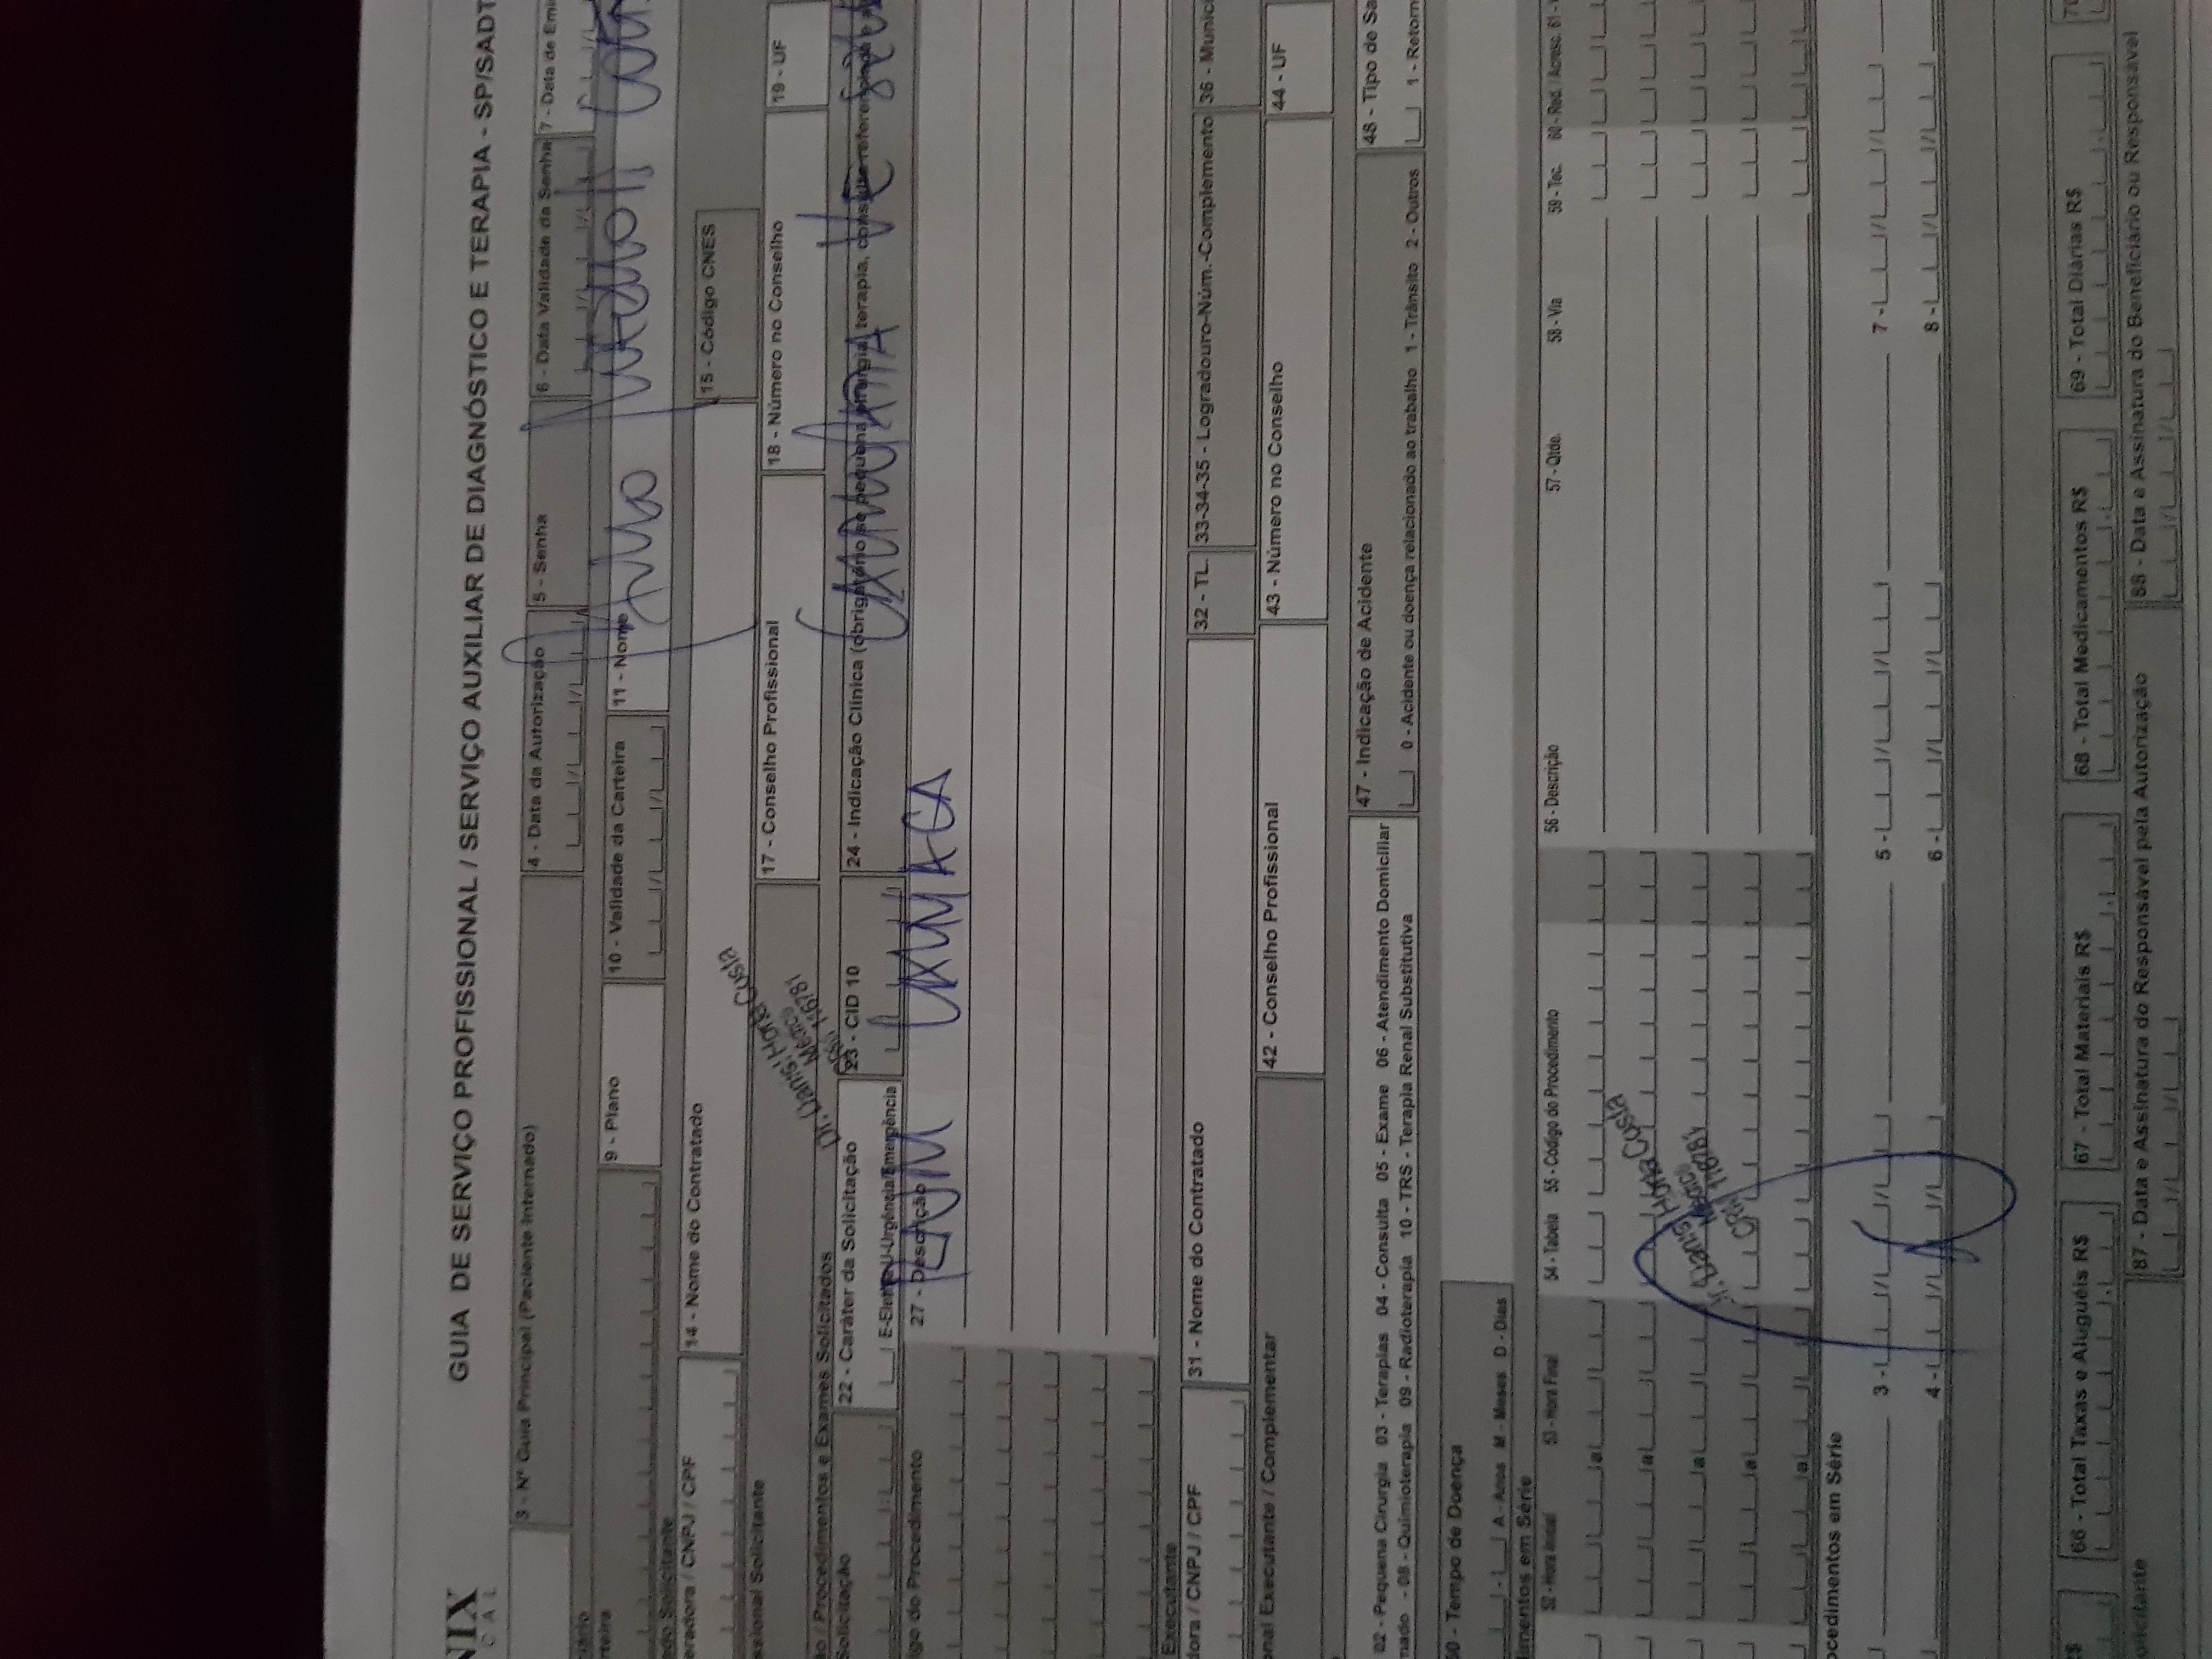 NIX
CAL
GUIA DE SERVIÇO PROFISSIONAL / SERVIÇO AUXILIAR DE DIAGNÓSTICO E TERAPIA - SP/SADT
3 - Nº Guia Principal (Paciente Internado)
4 - Data da Autorização
5 - Senha
6 - Data Validade da Senha
7 - Data de Emi
ciário
rteira
9 - Plano
10 - Validade da Carteira
11 - Nome
ado Solicitante
eradora / CNPJ / CPF
14 - Nome do Contratado
15 - Código CNES
ssional Solicitante
Horta Costa
Médico
116781
17 - Conselho Profissional
18 - Número no Conselho
19 - UF
ão / Procedimentos e Exames Solicitados
Solicitação
22 - Caráter da Solicitação
E-Eletiva U-Urgência/Emergência
23 - CID 10
24 - Indicação Clínica (obrigatório se pequena cirurgia, terapia, consulta referenciada e a
igo do Procedimento
27 - Descrição
RNM
Executante
dora / CNPJ / CPF
31 - Nome do Contratado
32 - TL.
33-34-35 - Logradouro-Núm.-Complemento
36 - Municí
onal Executante / Complementar
42 - Conselho Profissional
43 - Número no Conselho
44 - UF
02 - Pequena Cirurgia 03 - Terapias 04 - Consulta 05 - Exame 06 - Atendimento Domiciliar
rnado - 08 - Quimioterapia 09 - Radioterapia 10 - TRS - Terapia Renal Substitutiva
47 - Indicação de Acidente
0 - Acidente ou doença relacionado ao trabalho 1 - Trânsito 2 - Outros
48 - Tipo de Sa
1 - Retorn
50 - Tempo de Doença
A - Anos M - Meses D - Dias
dimentos em Série
52 - Hora Inicial 53 - Hora Final 54 - Tabela 55 - Código do Procedimento 56 - Descrição 57 - Qtde. 58 - Via 59 - Tec. 60 - Red. / Acresc. 61 -
a
a
a
a
a
Horta Costa
Médico
CRM 116781
ocedimentos em Série
3 - 5 - 7 -
4 - 6 - 8 -
R$
66 - Total Taxas e Aluguéis R$
67 - Total Materiais R$
68 - Total Medicamentos R$
69 - Total Diárias R$
70
olicitante
87 - Data e Assinatura do Responsável pela Autorização
88 - Data e Assinatura do Beneficiário ou Responsável